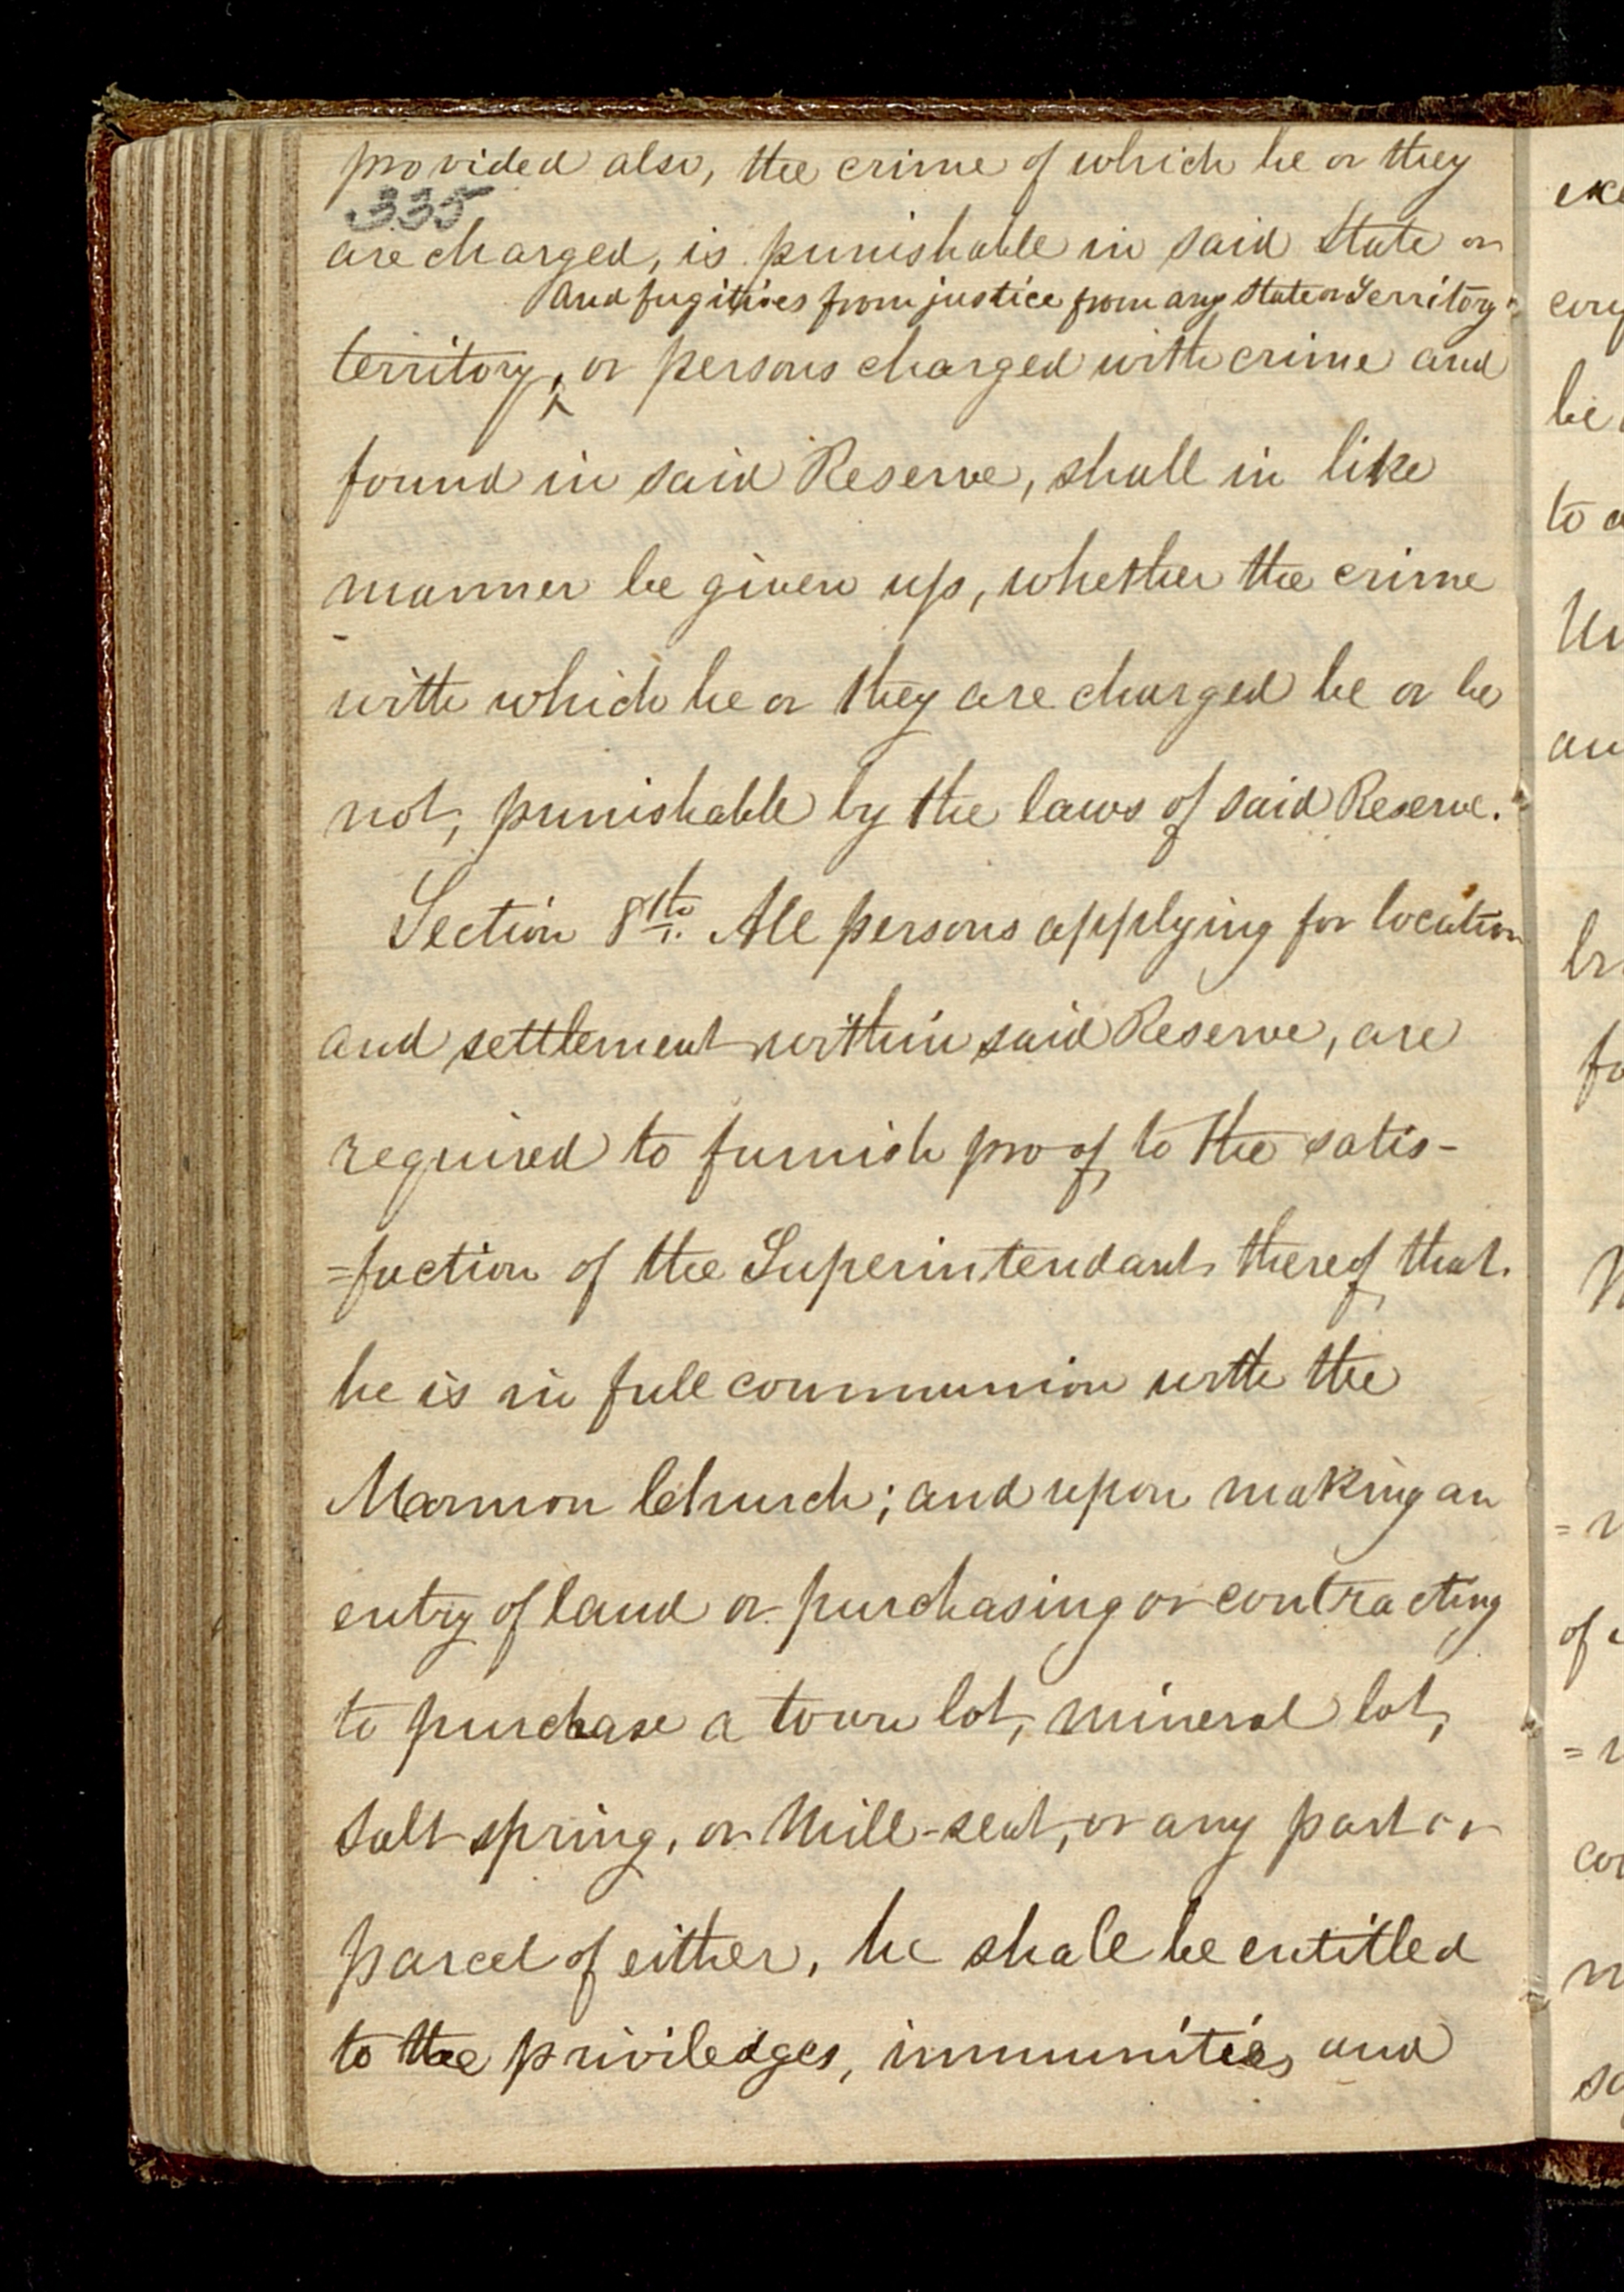 provided also, the crime of which he or they
335
are charged, is punishable in said State or
and fugitives from justice from any State or Territory
territory, or persons charged with crime and
found in said Reserve, shall in like
manner be given up, whether the crime
with which he or they are charged be or be
not, punishable by the laws of said Reserve.
Section 8th. All persons applying for location
and settlement within said Reserve, are
required to furnish proof, to the satis-
=faction of the Superintendant thereof, that
he is in full communion with the
Mormon Church; and upon making an
entry of land or purchasing or contracting
to purchase a town lot, mineral lot,
Salt spring, or Mill-seat, or any part or
parcel of either, he shall be entitled
to the priviledges, immunities, and
exe
be
to a
br
fo
of